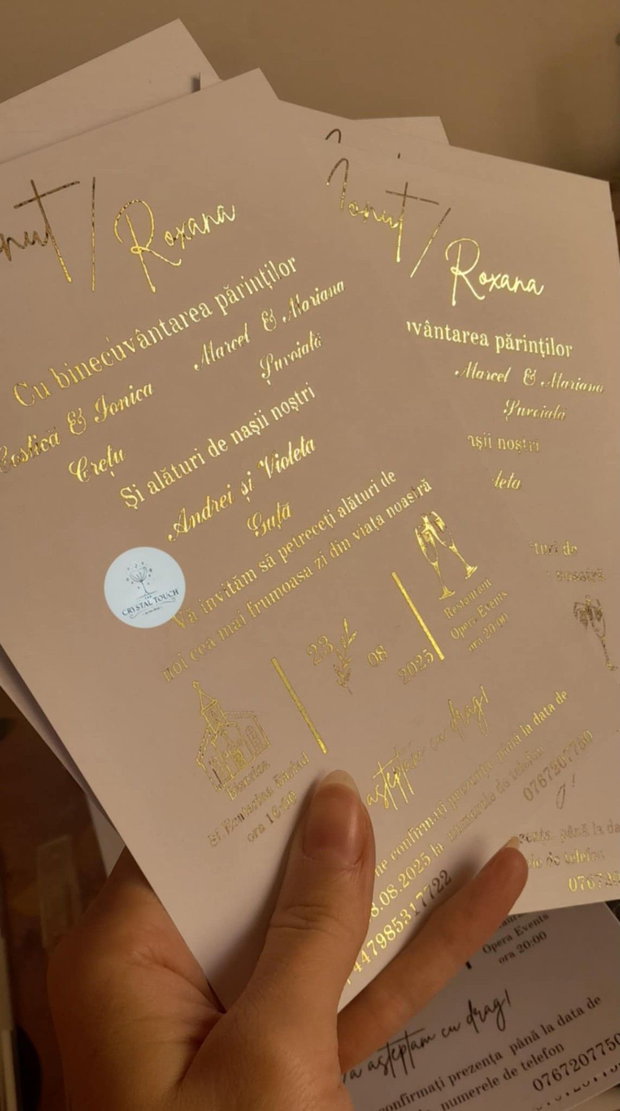 Ionuț / Roxana
Cu binecuvântarea părinților
Costică & Ionica
Marcel & Mariana
Crețu
Șuvoială
Și alături de nașii noștri
Andrei și Violeta
Guță
Vă invităm să petreceți alături de
noi cea mai frumoasă zi din viața noastră
23
08
2025
Biserica
ora
Restaurant
Opera Events
ora 20:00
așteptăm cu drag!
ne confirmați prezența până la data de
8.08.2025 la numerele de telefon
447985317722
0767207750
CRYSTAL TOUCH
Ionuț / Roxana
vântarea părinților
Marcel & Mariana
Șuvoială
așii noștri
leta
de
noastră
g!
până la da
le de telefon
0767
Opera Events
ora 20:00
așteptăm cu drag!
onfirmați prezența până la data de
numerele de telefon
0767207750